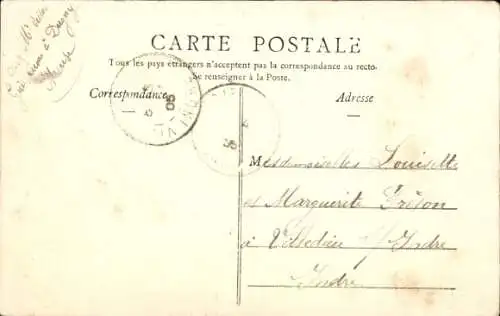 CARTE POSTALE
Tous les pays étrangers n'acceptent pas la correspondance au recto.
Se renseigner à la Poste.
Correspondance
Adresse
05
Mesdemoiselles Louisette
et Marguerite
à Villedieu s/ Indre
Indre
à Dugny
Meuse